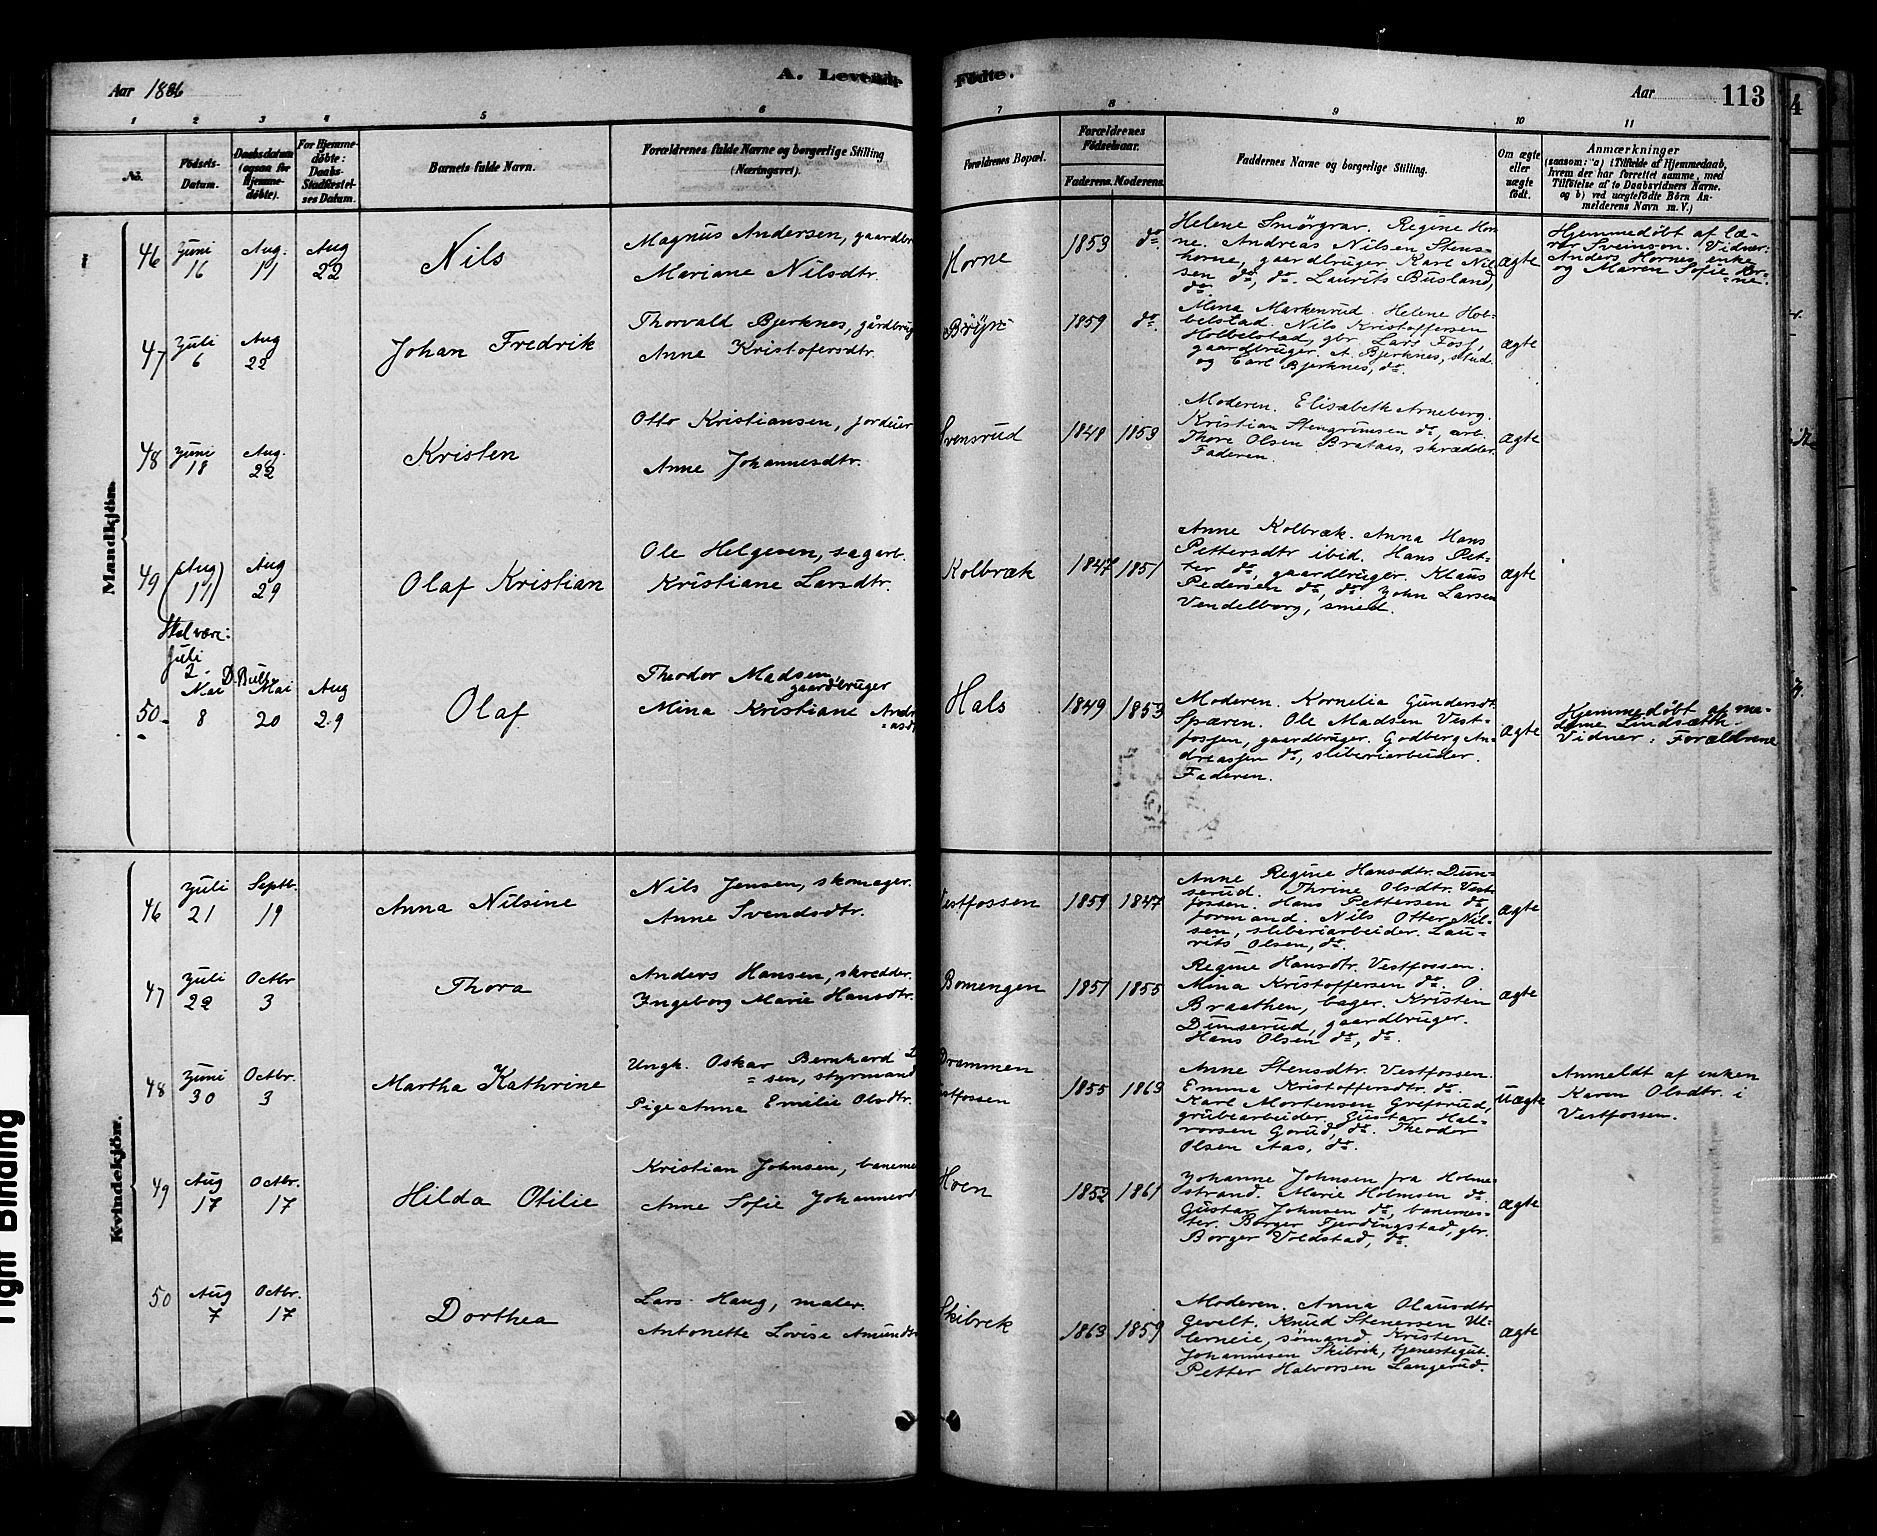 Aar 1886
A. Levende
Fødte.
Aar
113
1 2 3 4 5 6 7 8 9 10 11
No.
Fødsels-
Datum.
Daabsdatum
(ogsaa for
Hjemme-
døbte).
For Hjemme-
døbte:
Daabs-
Stadfæstel-
ses Datum.
Barnets fulde Navn.
Forældrenes fulde Navne og borgerlige Stilling
(Næringsvei).
Forældrenes Bopæl.
Forældrenes
Fødselsaar.
Faderens. Moderens.
Faddernes Navne og borgerlige Stilling.
Om ægte
eller
uægte
født.
Anmærkninger
(saasom: a) i Tilfælde af Hjemmedaab,
hvem der har forrettet samme, med
Tilføielse af to Daabsvidners Navne,
og b) ved uægtefødte Børn An-
melderens Navn m. V.)
Mandkjøn.
46
Juni
16
Aug.
11
Aug
22
Nils
Magnus Andersen, gaardbr
Mariane Nilsdtr.
Horne
1853
do
Helene Smörgrav. Regine Hor-
ne. Andreas Nilsen Stens-
horne, gaardbruger. Karl Nil-
sen do, do. Laurits Busland,
do.
ægte
Hjemmedøbt af læ-
rer Sveinson. Vidner:
Anders Hornes enke
og Maren Sofie Hor-
ne.
47
Juli
6
Aug
22
Johan Fredrik
Thorvald Bjerknes, gårdbrug
Anne Kristofersdtr.
Böijn
1859
do.
Mina Markerud. Helene Hob-
belstad. Nils Kristoffersen
Hobbelstad, gbr. Lars Foss,
gaardbruger. A. Bjerknes, stud.
og Carl Bjerknes, do.
ægte
48
Juni
18
Aug.
22
Kristen
Otto Kristiansen, jordeier
Anne Johannesdtr.
Svensrud
1848
1853
Moderen. Elisabeth Arneberg.
Kristian Stengrimsen do, arb.
Thore Olsen Brataas, skrædder.
Faderen.
ægte
49
(Aug
17)
Aug
29
Olaf Kristian
Ole Helgesen, sagarb.
Kristiane Larsdtr.
Kolbræk
1847
1851
Anne Kolbræk. Anna Hans
Pettersdtr ibid. Hans Pet-
ter do, gaardbruger. Klaus
Pedersen do, do. John Larsen
Vendelborg, smed.
ægte
Skal være:
Juli
2.
D. Bull
50
Mai
8
Mai
20
Aug
29
Olaf
Theodor Madsen,
gaardbruger
Mina Kristiane Andr
=asdt
Hals
1849
1853
Moderen. Kornelia Gundersdt
Spæren. Ole Madsen Vest-
fossen, gaardbruger. Godberg An-
dreassen do, sliberiarbeider.
Faderen.
ægte
Hjemmedøbt af ma-
dame Lindsæth.
Vidner: Forældrene
Kvindekjøn.
46
Juli
21
Septb.
19
Anna Nilsine
Nils Jensen, skomager.
Anne Svendsdtr.
Vestfossen
1859
1847
Anne Regine Hansdtr. Dun-
serud. Thrine Olsdtr. Vest-
fossen. Hans Pettersen do,
formand. Nils Otter Nil-
sen, sliberiarbeider. Lau-
rits Olsen, do.
ægte
47
Juli
22
Octbr
3
Thora
Anders Hansen, skredder.
Ingeborg Marie Hansdtr.
Bomengen
1851
1855
Regine Hansdtr. Vestfossen.
Mina Kristoffersen do. O.
Braathen, bager. Kristen
Dunserud, gaardbruger.
Hans Olsen do, do.
ægte
48
Juni
30
Octbr.
3
Martha Kathrine
Ungk. Oskar Bernhard
=sen, styrmand
Pige Anna Emilie Olsdtr.
Drammen
estfossen
1855
1863
Anne Stensdtr. Vestfossen.
Emma Kristoffersdtr. do.
Karl Mortensen Grefsrud,
grubearbeider. Gustav Hal-
vorsen Gorud, do. Theodor
Olsen Aas, do.
uægte
Anmeldt af enken
Karen Olsdtr. i
Vestfossen.
49
Aug
17
Octbr.
17
Hilda Otilie
Kristian Johnsen, baneme
Anne Sofie Johannesd
Hoen
1852
1861
Johanne Johnsen fra Holme-
strand. Marie Holmsen do.
Gustav Johnsen do, banemes-
ter. Borger Fjerdingstad, gbr.
Borger Voldstad, do.
ægte
50
Aug
7
Octbr.
17
Dorthea
Lars Haug, maler.
Antonette Lovise Amundt
Skibrek
1863
1859
Moderen. Anna Olausdtr
Gevelt. Knud Stenersen Ul-
lerneie, sömand. Kristen
Johannesen Skibrek, tjenestegut.
Petter Halvorsen Langerud.
ægte
Tight Binding